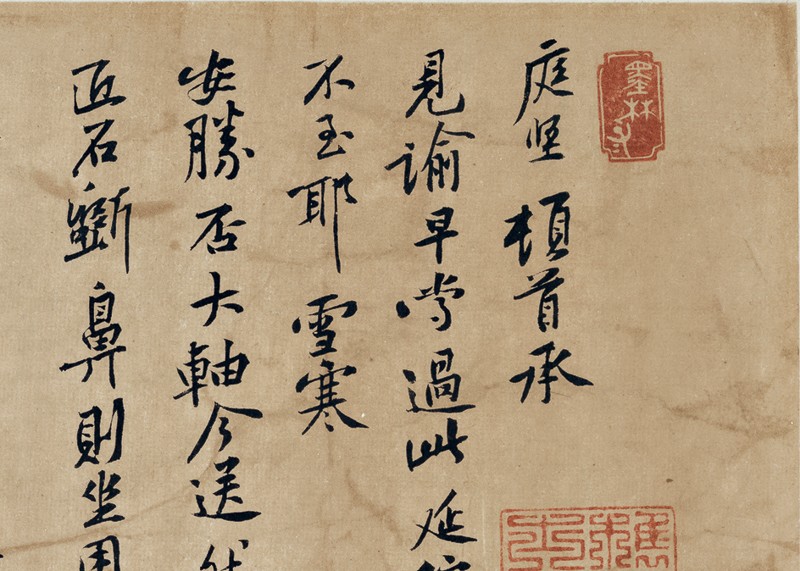 庭坚顿首承
見諭早嘗過此延
不至耶雪寒
安勝否大軸今送
匠石斵鼻則坐困
墨林